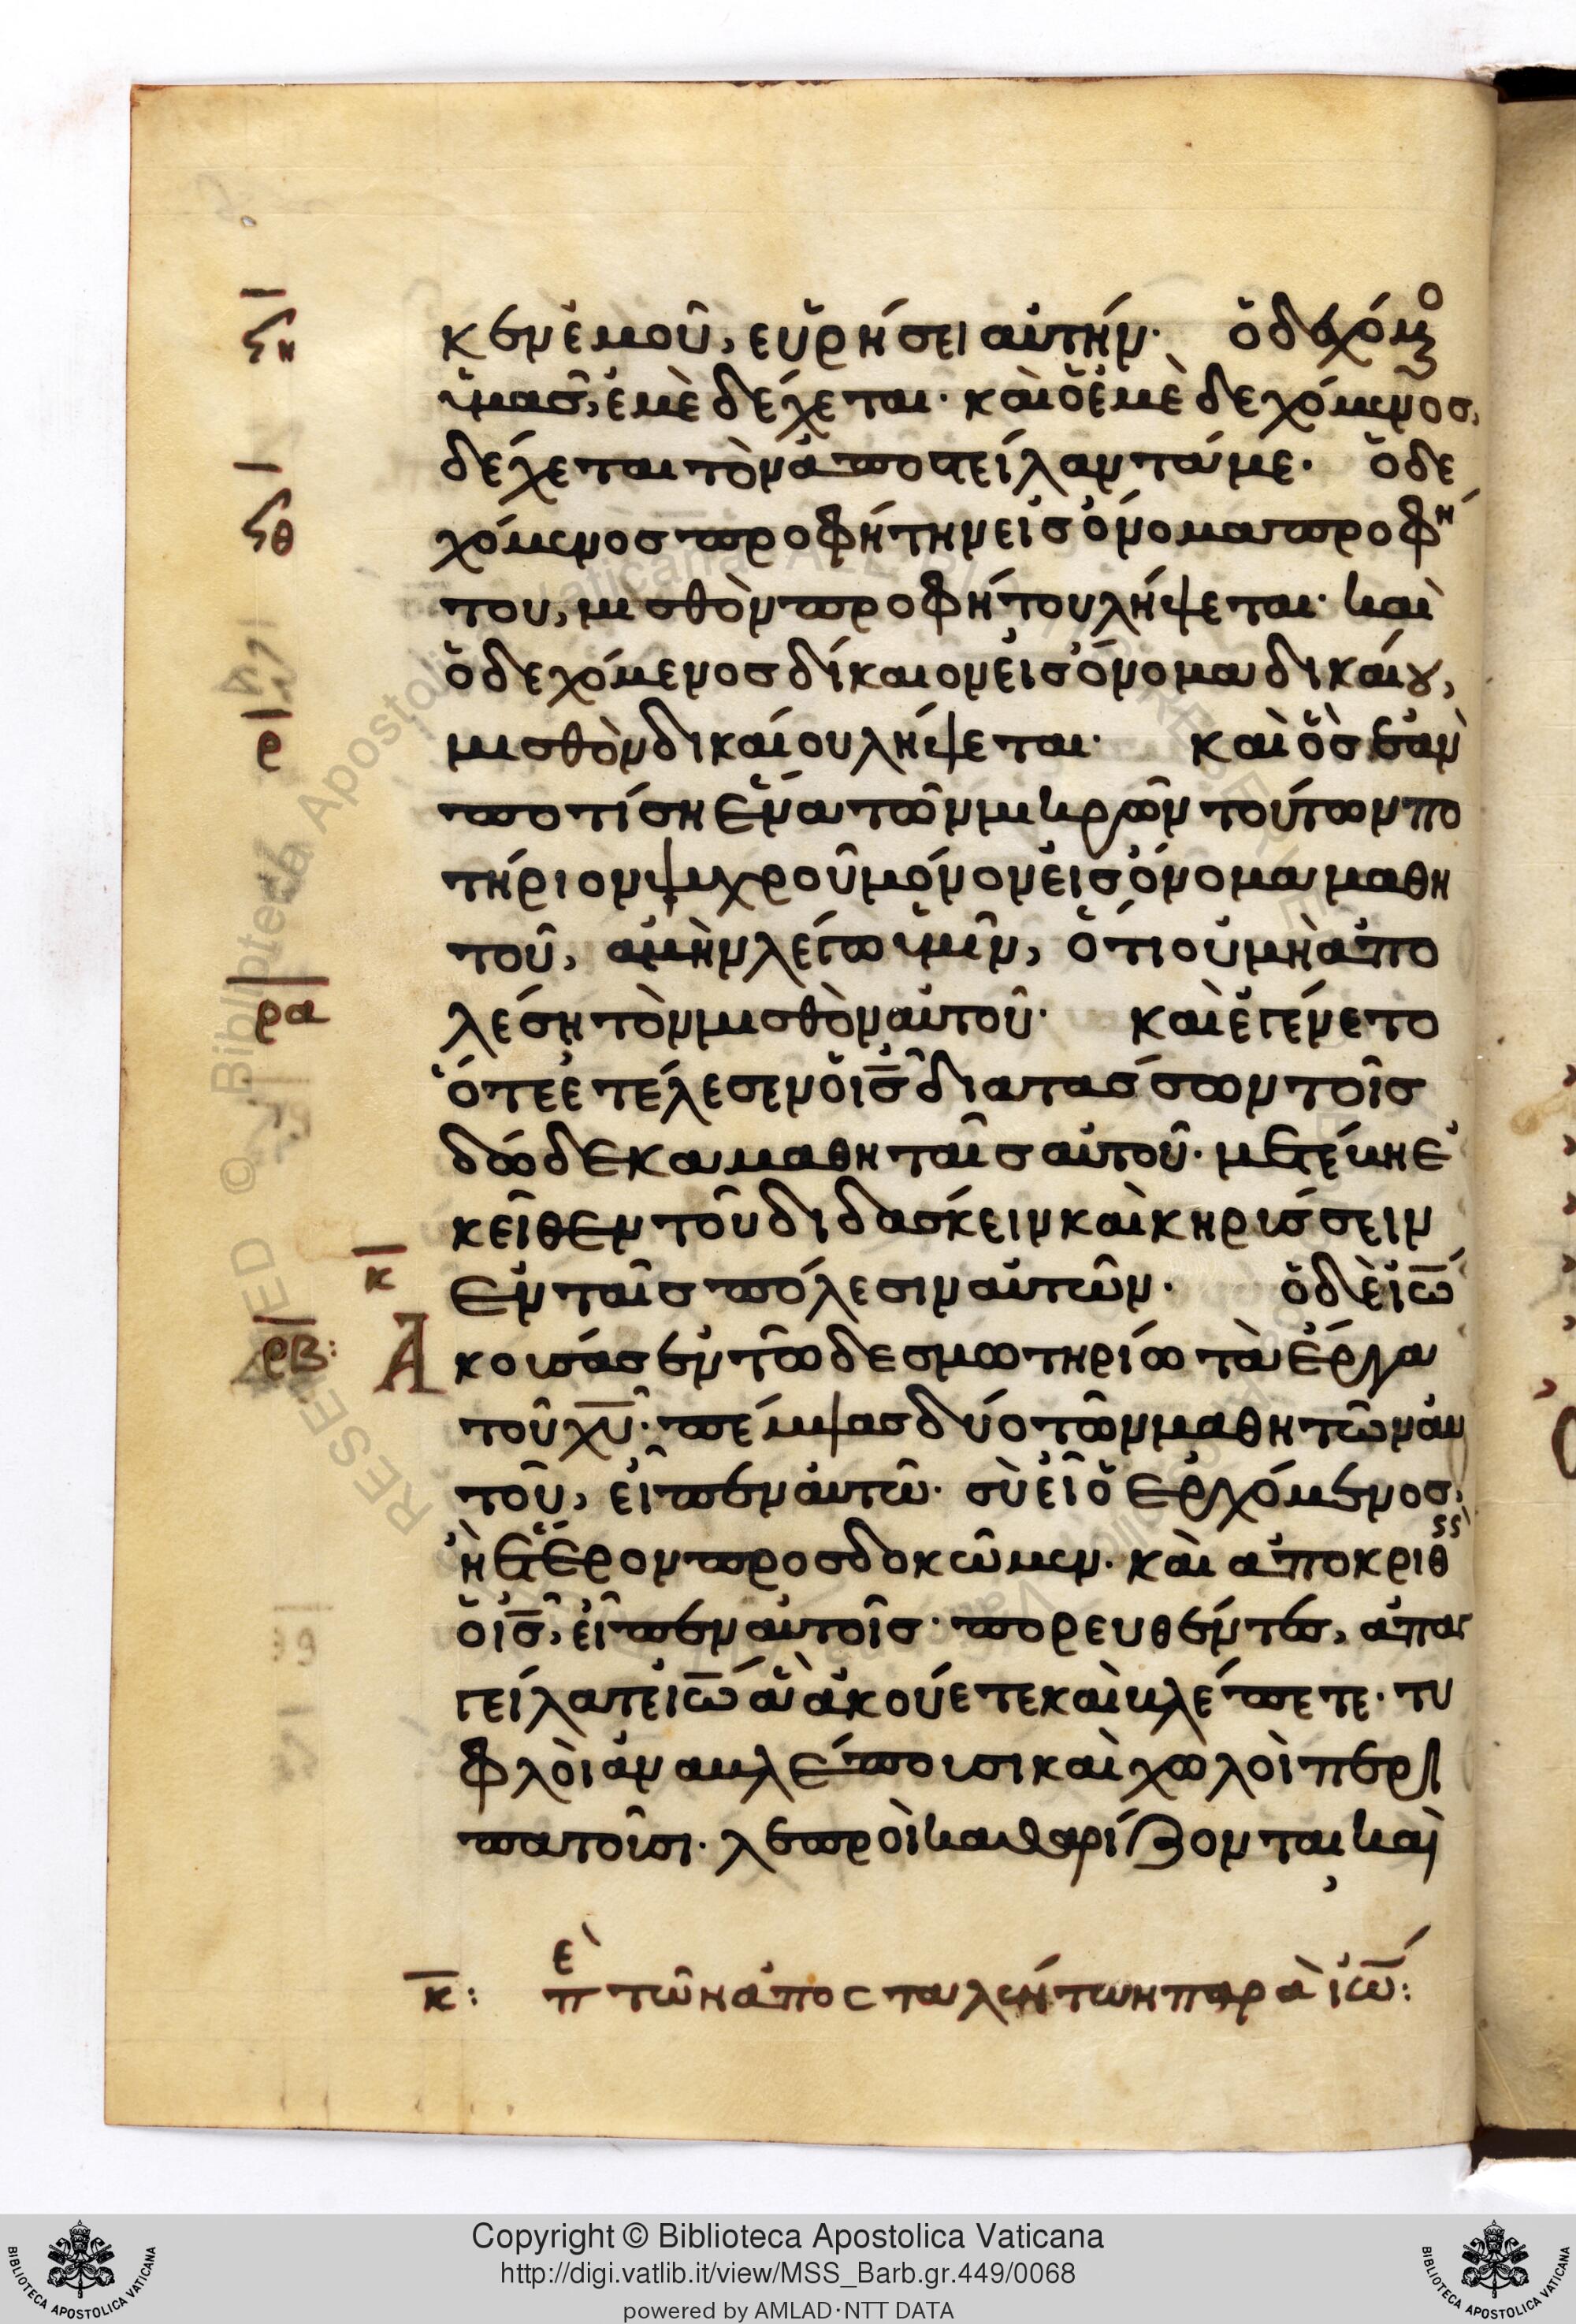 ϟη
κεν ἐμοῦ, εὑρήσει αὐτήν· ὁ δεχόμενο
ὑμᾶς, ἐμὲ δέχεται· καὶ ὁ ἐμὲ δεχόμενος,
δέχεται τὸν ἀποστείλαντά με· ὁ δε
ϟθ
χόμενος προφήτην εἰς ὄνομα προφή
του, μισθὸν προφήτου λήψεται· καὶ
ὁ δεχόμενος δίκαιον εἰς ὄνομα δικαίου,
ρ
μισθὸν δικαίου λήψεται· καὶ ὃς ἐὰν
ποτίση ἕνα τῶν μικρῶν τούτων πο
τήριον ψυχροῦ μόνον εἰς ὄνομα μαθη
τοῦ, ἀμὴν λέγω ὑμῖν, ὅτι οὐ μὴ ἀπο
ρα
λέση τὸν μισθὸν αὐτοῦ· καὶ ἐγένετο
ὅτε ἐτέλεσεν ὁ ις̅ διατάσσων τοῖς
δώδεκα μαθηταῖς αὐτοῦ· μετέβη ἐ
κεῖθεν τοῦ διδάσκειν καὶ κηρύσσειν
κ̅
ἐν ταῖς πόλεσιν αὐτῶν· ὁ δὲ ἰω̅
ρβ:
Ἀκούσας ἐν τῶ δεσμωτηρίω τὰ ἔργα
τοῦ χυ̅· πέμψας δύο τῶν μαθητῶν αὐ
τοῦ, εἶπεν αὐτῶ· σὺ εἶ ὁ ἐρχόμενος,
ἢ ἕτερον προσδοκῶμεν· καὶ ἀποκριθ
ὁ ις̅, εἶπεν αὐτοῖς· πορευθέντες, ἀπαγ
γείλατε ἰω̅ ἃ ἀκούετε καὶ βλέπετε· τυ
φλοὶ ἀναβλέπουσι καὶ χωλοὶ περι
πατοῦσι· λεπροὶ καθαρίζονται καὶ
κ̅: πε τῶν ἀποσταλέντων παρὰ ἰω̅:
Copyright © Biblioteca Apostolica Vaticana
http://digi.vatlib.it/view/MSS_Barb.gr.449/0068
powered by AMLAD·NTT DATA
BIBLIOTECA APOSTOLICA VATICANA
BIBLIOTECA APOSTOLICA VATICANA